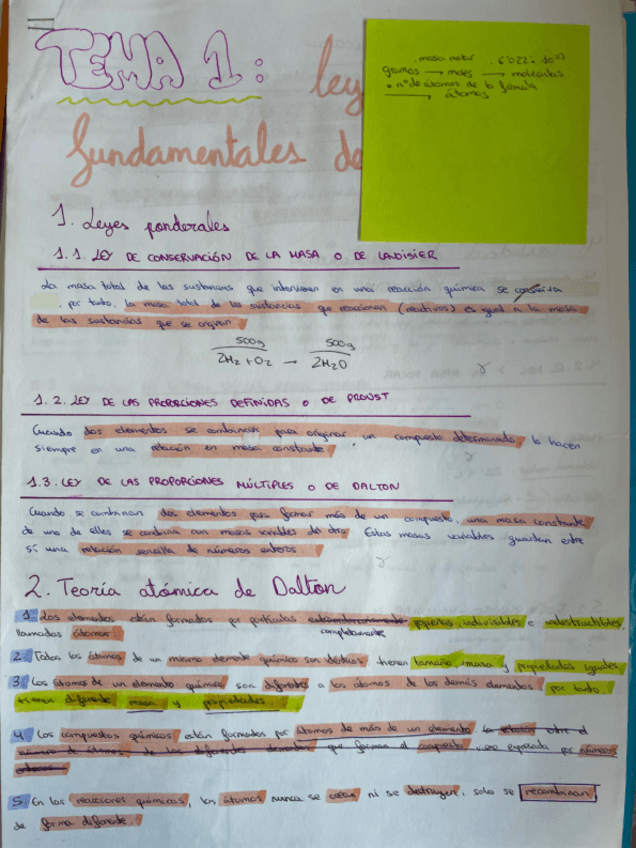 TEMA 1: ley
fundamentales de
masa molar 6'022·10²³
gramos → moles → moleculas
nº de átomos de la fórmula
→ átomos
1. Leyes ponderales
1.1. LEY DE CONSERVACIÓN DE LA MASA O DE LAVOISIER
La masa total de las sustancias que intervienen en una reacción química se
, por tanto, la masa total de las sustancias que reaccionan (reactivos) es igual a la masa
de las sustancias que se originan
500g 500g
2H₂ + O₂ → 2H₂O
1.2. LEY DE LAS PROPORCIONES DEFINIDAS O DE PROUST
Cuando dos elementos se combinan para originar un compuesto determinado, lo hacen
siempre en una relación en masa constante.
1.3. LEY DE LAS PROPORCIONES MÚLTIPLES O DE DALTON
Cuando se combinan dos elementos para formar más de un compuesto, una masa constante
de uno de ellos se combina con masas variables del otro. Estas masas variables guardan entre
sí una relación sencilla de números enteros
2. Teoría atómica de Dalton
1. Los elementos están formados por partículas extraordinariamente pequeñas, indivisibles e indestructibles,
llamadas átomos completamente
2. Todos los átomos de un mismo elemento químico son idénticos, tienen tamaño, masa y propiedades iguales
3. Los átomos de un elemento químico son diferentes a los átomos de los demás elementos, por tanto,
tienen diferente masa y propiedades
4. Los compuestos químicos están formados por átomos de más de un elemento. La relación entre el
número de átomos de los diferentes elementos que forman el compuesto viene expresada por números
enteros
5. En las reacciones químicas, los átomos nunca se crean ni se destruyen, solo se recombinan
de forma diferente.